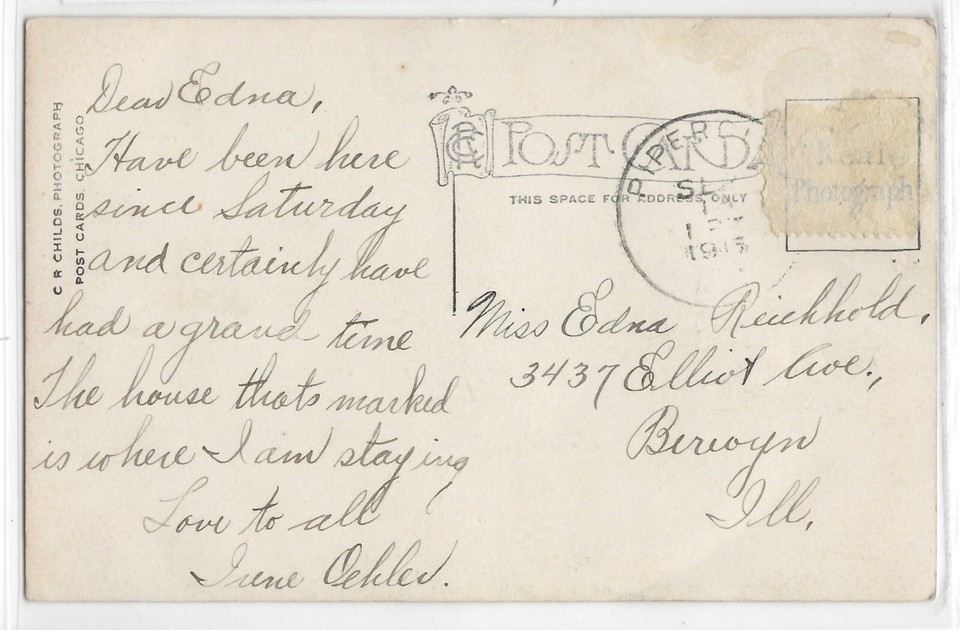 Dear Edna,
Have been here
since Saturday
and certainly have
had a grand time
The house thats marked
is where I am staying
Love to all
Irene Oehler.
C R CHILDS, PHOTOGRAPH
POST CARDS, CHICAGO
POST CARD
THIS SPACE FOR ADDRESS ONLY
PIPER
SEP
1
191
Photograph
Miss Edna Reichhold,
3437 Elliot Ave.,
Berwyn
Ill.